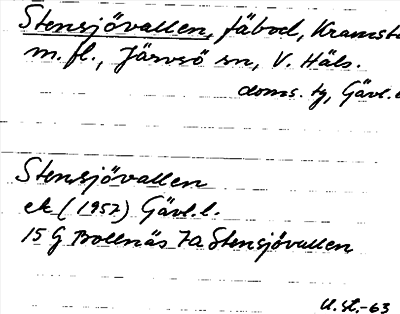 Stensjövallen, fäbod, Kramsta
m.fl., Järvsö sn, V. Häls.
doms. tg, Gävl.
Stensjövallen
ek (1957) Gävl.l.
15 G Bollnäs 7a Stensjövallen
U.St.-63